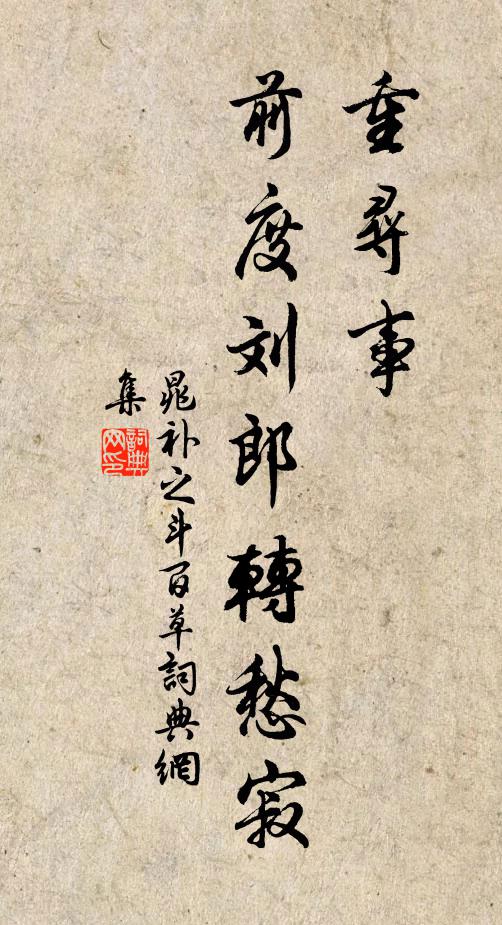 重尋事
前度刘郎轉愁寂
晁补之斗百草詞典網
集
詞典网印